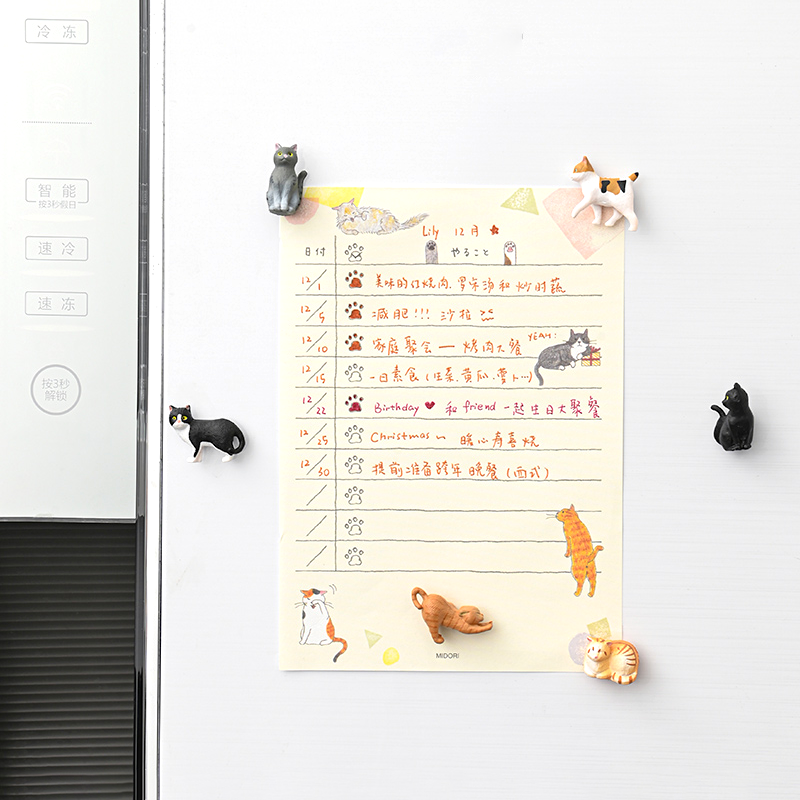 冷冻
智能
按3秒假日
速冷
速冻
按3秒
解锁
Lily 12月
日付 やること
12/1 美味的红烧肉.罗宋汤和炒时蔬
12/5 减肥!!! 沙拉
12/10 家庭聚会—烤肉大餐 YEAH!
12/15 一日素食(生菜.黄瓜.萝卜…)
12/22 Birthday ♥ 和 friend 一起生日大聚餐
12/25 Christmas ~ 暖心寿喜烧
12/30 提前准备跨年晚餐(西式)
MIDORI